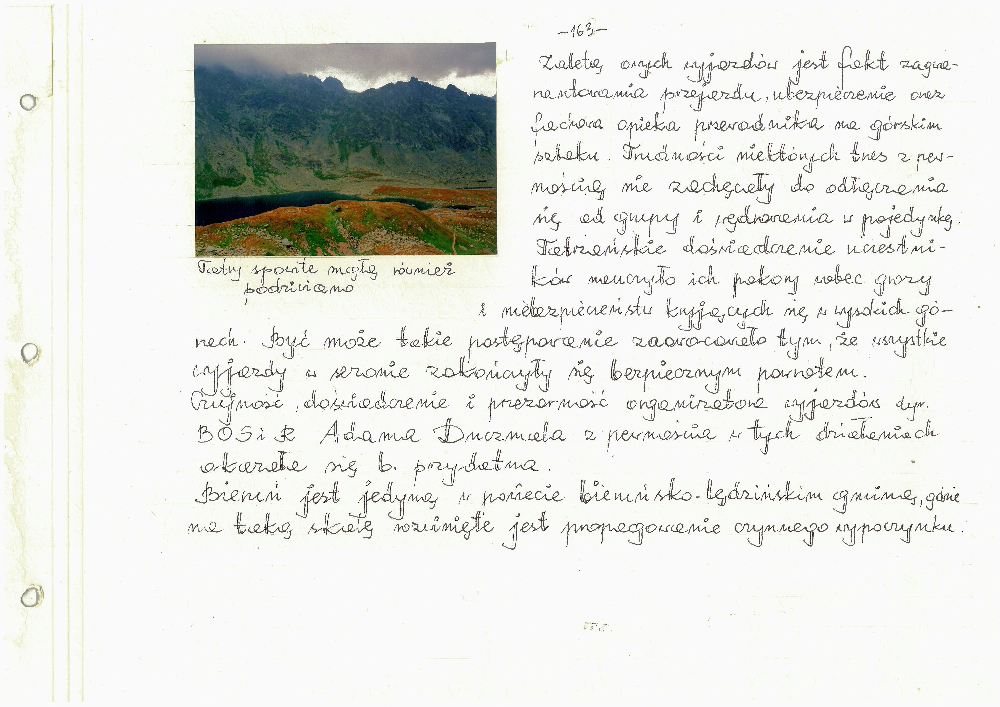 -163-
Zaletą owych wyjazdów jest fakt zagwa-
rantowania przejazdu, ubezpieczenie oraz
fachowa opieka przewodnika na górskim
szlaku. Trudności niektórych tras z pew-
nością nie zachęcały do odłączenia
się od grupy i wędrowania w pojedynkę.
Tatrzańskie doświadczenie uczestni-
ków nauczyło ich pokory wobec grozy
i niebezpieczeństw kryjących się w wysokich gó-
rach. Być może takie postępowanie zaowocowało tym, że wszystkie
wyjazdy w sezonie zakończyły się bezpiecznym powrotem.
Czujność, doświadczenie i przezorność organizatora wyjazdów dyr.
BOSiR Adama Duczmala z pewnością w tych działaniach
okazała się b. przydatna.
Bieruń jest jedyną w powiecie bieruńsko-lędzińskim gminą, gdzie
na taką skalę rozwinięte jest propagowanie czynnego wypoczynku.
Tatry spowite mgłą również
podziwiano